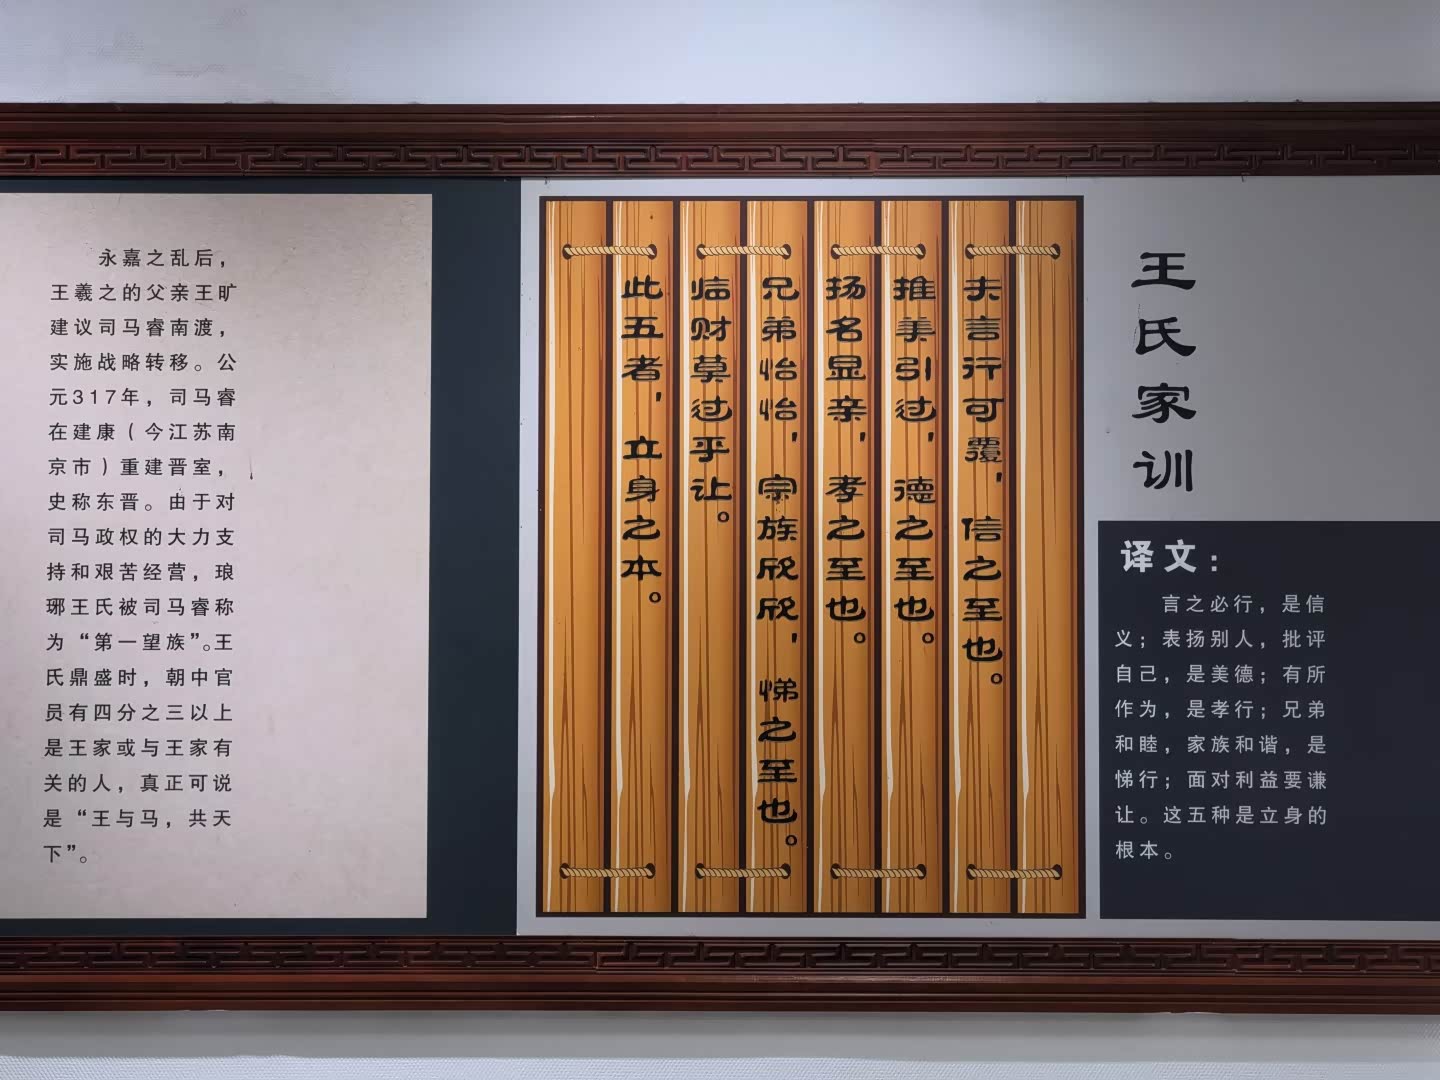 永嘉之乱后，
王羲之的父亲王旷
建议司马睿南渡，
实施战略转移。公
元317年，司马睿
在建康（今江苏南
京市）重建晋室，
史称东晋。由于对
司马政权的大力支
持和艰苦经营，琅
琊王氏被司马睿称
为“第一望族”。王
氏鼎盛时，朝中官
员有四分之三以上
是王家或与王家有
关的人，真正可说
是“王与马，共天
下”。
王氏家训
夫言行可覆，信之至也。
推美引过，德之至也。
扬名显亲，孝之至也。
兄弟怡怡，宗族欣欣，悌之至也。
临财莫过乎让。
此五者，立身之本。
译文：
言之必行，是信
义；表扬别人，批评
自己，是美德；有所
作为，是孝行；兄弟
和睦，家族和谐，是
悌行；面对利益要谦
让。这五种是立身的
根本。